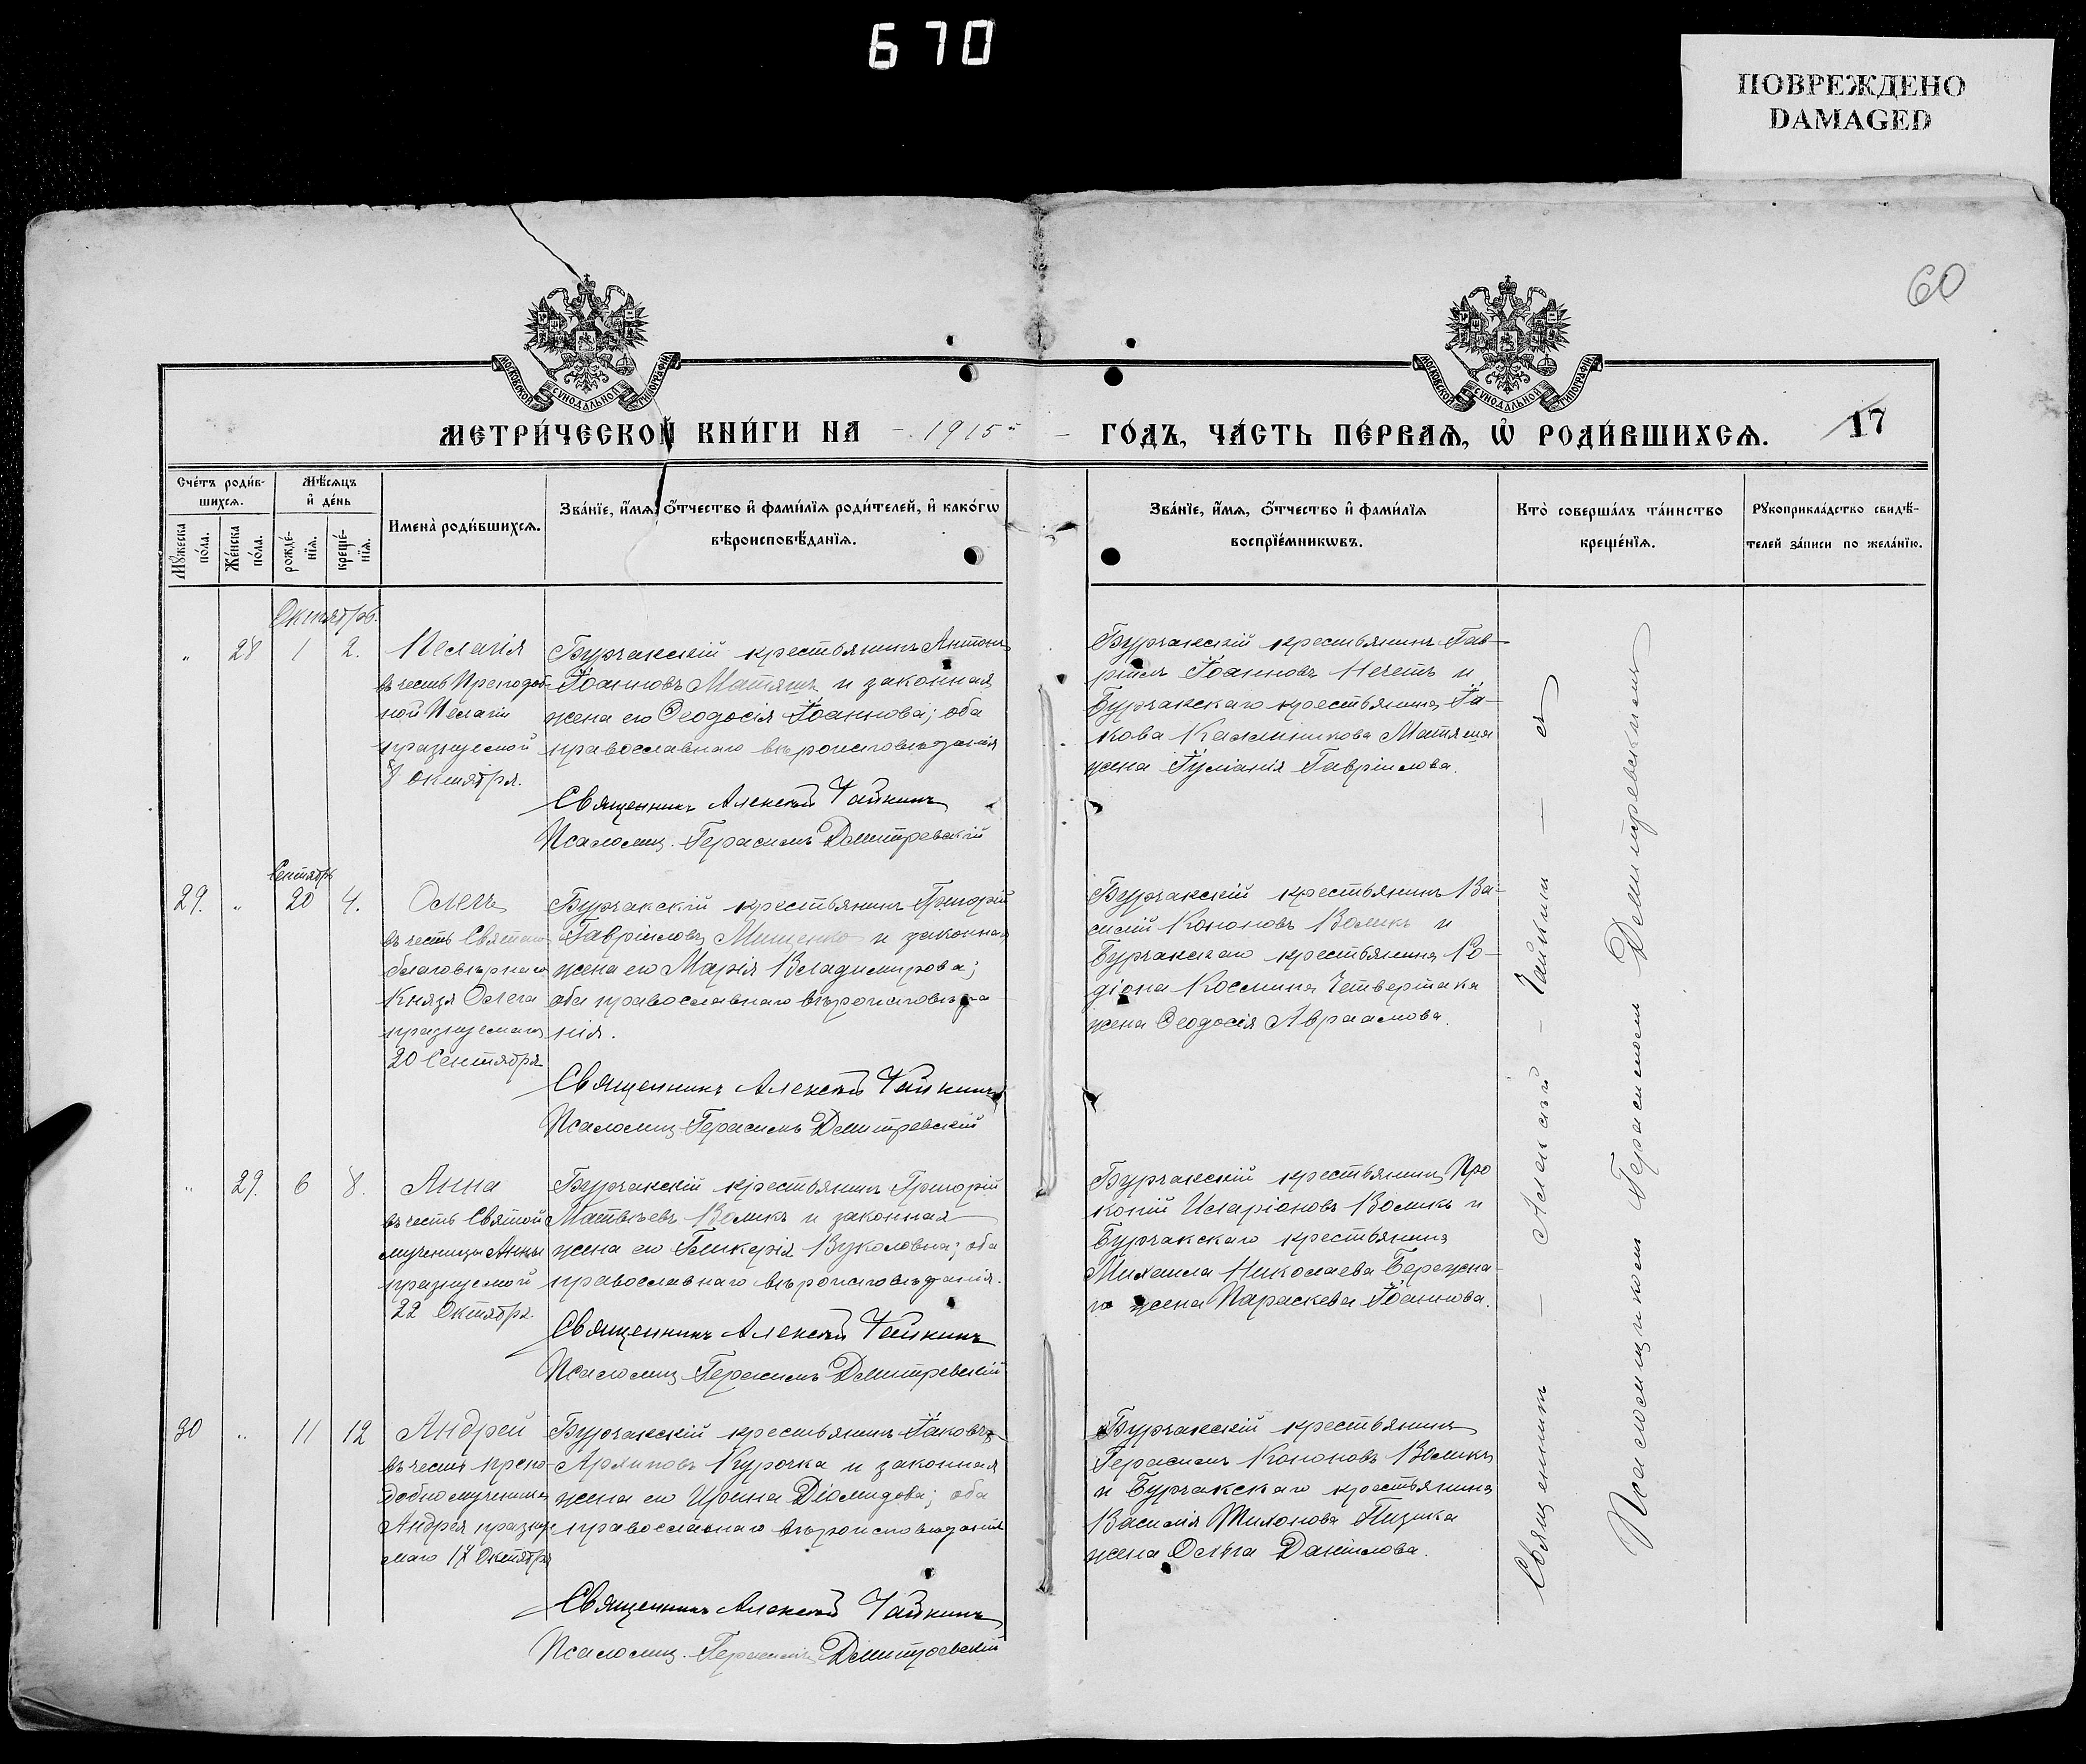 670
ПОВРЕЖДЕНО
DAMAGED
60
МОСКОВСКОЙ СУНОДАЛЬНОЙ ТИПОГРАФІИ
МОСКОВСКОЙ СУНОДАЛЬНОЙ ТИПОГРАФІИ
МЕТРИ́ЧЕСКОЙ КНИ́ГИ НА - 1915 - ГО́ДЪ, ЧА́СТЬ ПЕ́РВАЯ, Ѡ҆ РОДИ́ВШИХСЯ.
17
Сче́тъ роди́в-
шихся.
Мѣ́сяцъ
и҆ де́нь
Мꙋ́жеска
по́ла.
Же́нска
по́ла.
рожде́-
нїя.
креще́-
нїя.
Имена̀ роди́вшихся.
Зва́нїе, и҆́мя, ѻ҆́тчество и҆ фами́лїя роди́телей, и҆ како́гѡ
вѣроисповѣ́данїя.
Зва́нїе, и҆́мя, ѻ҆́тчество и҆ фами́лїя
воспрїе́мникѡвъ.
Кто̀ соверша́лъ та́инство
креще́нїя.
Рꙋкоприкла́дство свидѣ́-
телей за́писи по жела́нїю.
Октябрь.
" 28 1 2.
Пелагія
въ честь Преподоб-
ной Пелагіи
празнуемой
8 октября.
Бурчакскій крестьянинъ Антонъ
Іоанновъ Матяшъ и законная
жена его Ѳеодосія Іоаннова; оба
православнаго вѣроисповѣданія
Священникъ Алексѣй Чайкинъ
Псаломщ. Герасимъ Демитревскій
Бурчакскій крестьянинъ Гав-
ріилъ Іоанновъ Нечетъ и
Бурчакскаго крестьянина Іа-
кова Калиникова Матяша
жена Іуліанія Гавріилова.
Сентябрь
29. " 20 4.
Олегъ
въ честь Святаго
благовѣрнаго
Князя Олега
празнуемаго
20 Сентября
Бурчакскій крестьянинъ Григорій
Гавріиловъ Мищенко и законная
жена его Марія Владимирова;
оба православнаго вѣроисповѣда
нія.
Священникъ Алексѣй Чайкинъ
Псаломщ. Герасимъ Демитревскій
Бурчакскій крестьянинъ Ва-
силій Кононовъ Воликъ и
Бурчакскаго крестьянина Ро-
діона Космина Четвертака
жена Ѳеодосія Авраамова.
" 29. 6 8.
Анна
въ честь Святой
мученицы Анны
празнуемой
22 Октября.
Бурчакскій крестьянинъ Григорій
Матвѣевъ Воликъ и законная
жена его Гликерія Вуколовна; оба
православнаго вѣроисповѣданія.
Священникъ Алексѣй Чайкинъ
Псаломщ. Герасимъ Демитревскій
Бурчакскій крестьянинъ Про
копій Иларіоновъ Воликъ и
Бурчакскаго крестьянина
Михаила Николаева Бережна-
го жена Параскева Іоаннова.
30 " 11 12
Андрей
въ честь препо-
добномученика
Андрея празнуе
маго 17 Октября
Бурчакскій крестьянинъ Іаковъ
Архиповъ Курочка и законная
жена его Ирина Діомидова; оба
православнаго вѣроисповѣданія
Священникъ Алексѣй Чайкинъ
Псаломщ. Герасимъ Демитревскій
Бурчакскій крестьянинъ
Герасимъ Кононовъ Воликъ
и Бурчакскаго крестьянина
Василія Тихонова
жена Ольга Даніилова.
Священникъ - Алексѣй - Чайкинъ - съ
Псаломщикомъ Герасимомъ Демитревскимъ